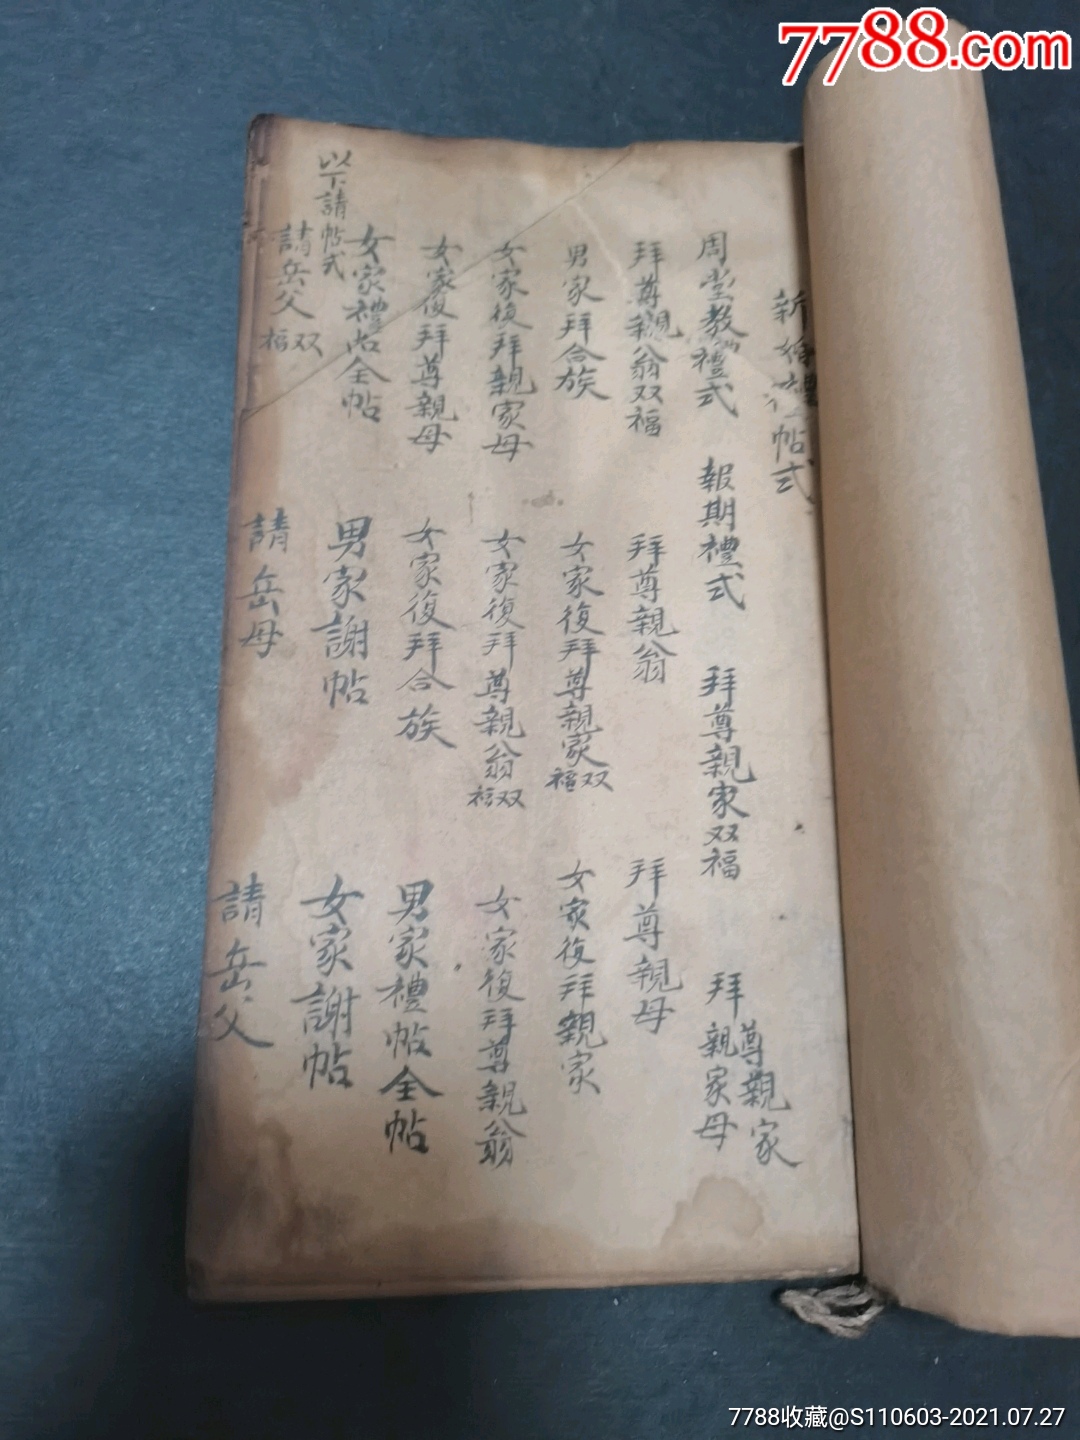 7788.com
新婚禮帖式
周堂教禮式 報期禮式 拜尊親家双福 拜尊親家 親家母
拜尊親翁双福 拜尊親翁 拜尊親母
男家拜合族 女家復拜尊親家双福 女家復拜親家
女家復拜親家母 女家復拜尊親翁双福 女家復拜尊親翁
女家復拜尊親母 女家復拜合族 男家禮帖全帖
女家禮帖全帖 男家謝帖 女家謝帖
以下請帖式
請岳父双福 請岳母 請岳父
7788收藏@S110603-2021.07.27